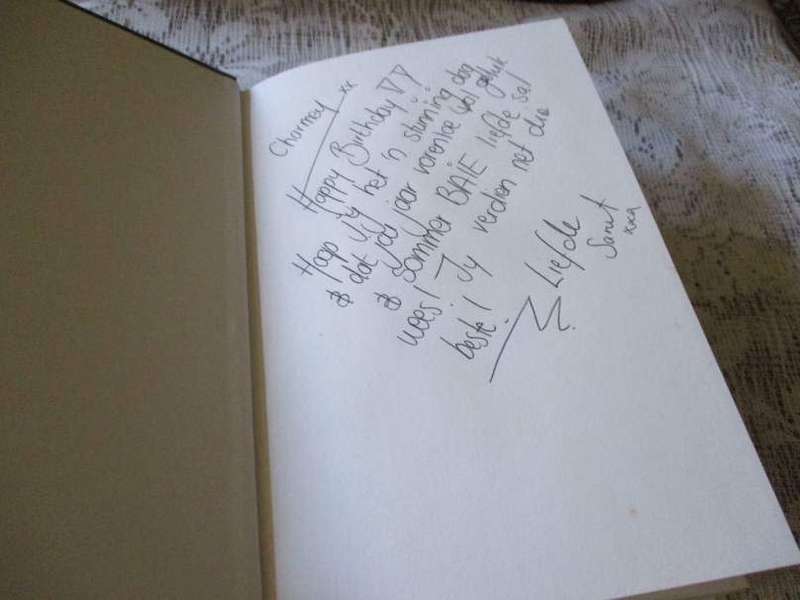 Charmey xx
Happy Birthday
Hoop jy het 'n stunning dag
& dat jou jaar vorentoe vol geluk
& sommer BAIE liefde sal
wees! Jy verdien net die
beste!
Liefde
xxx